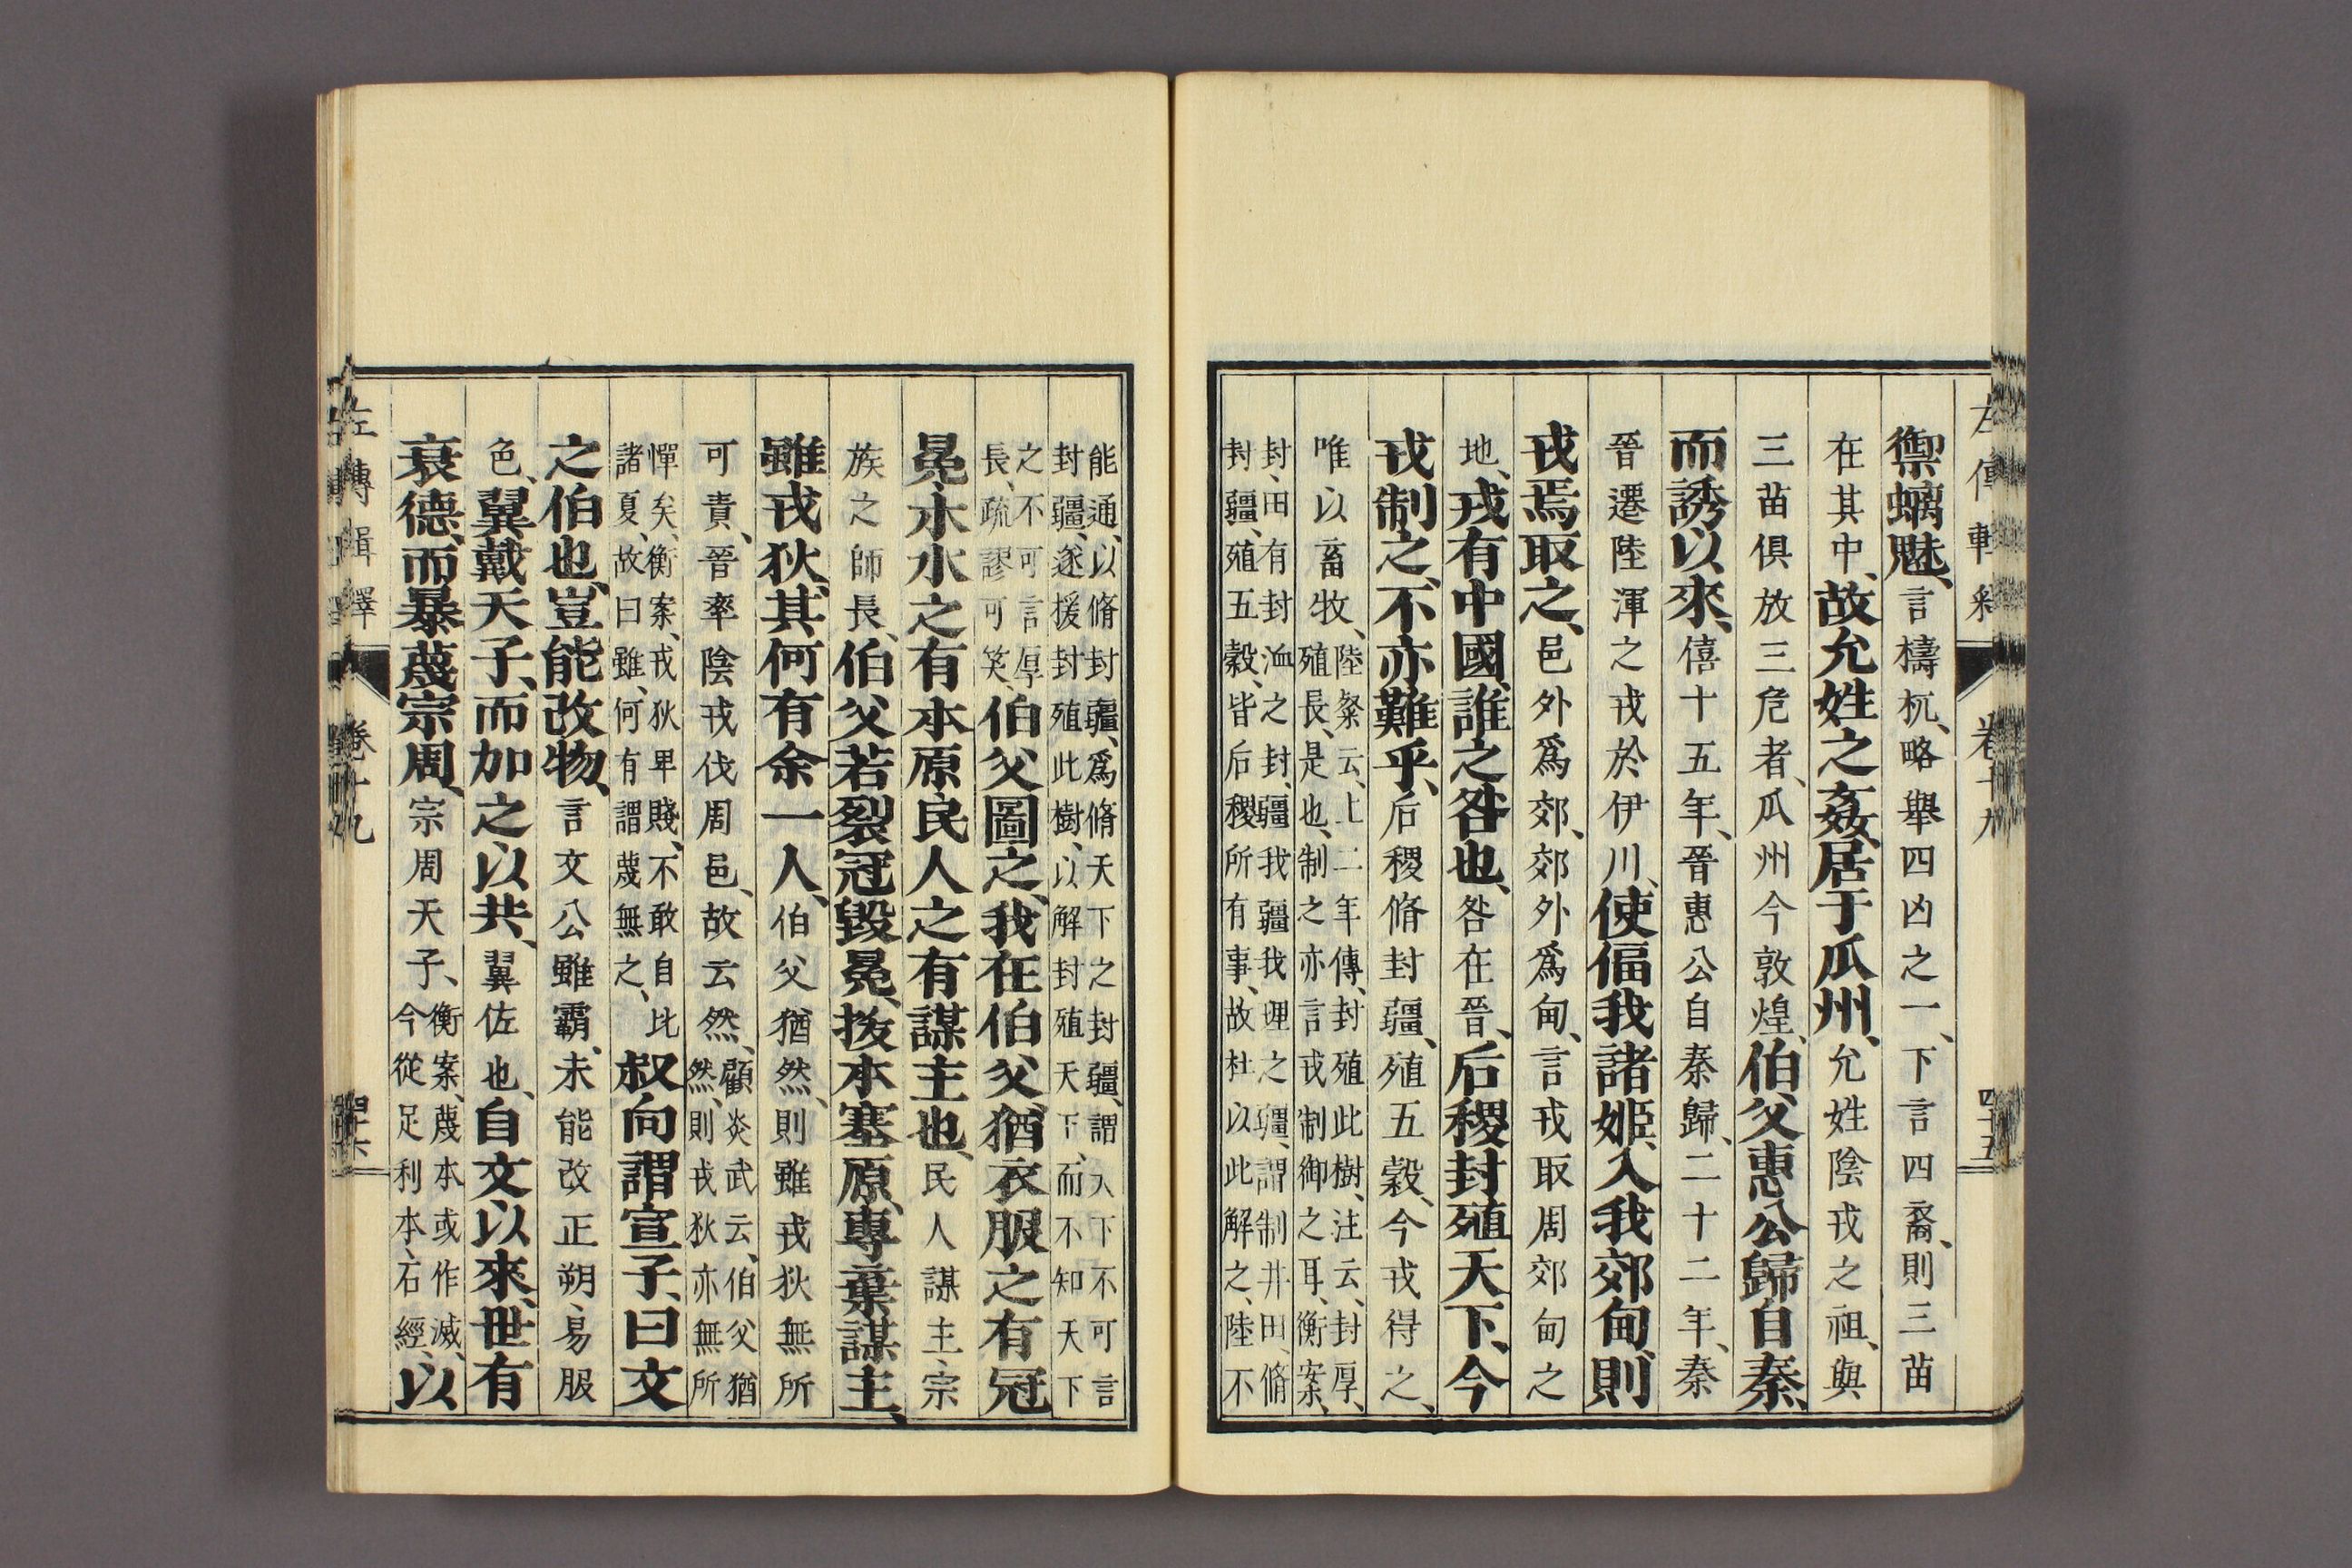 禦螭魅、言檮杌、略舉四凶之一、下言四裔、則三苗
在其中、故允姓之姦、居于瓜州、允姓陰戎之祖、與
三苗俱放三危者、瓜州今敦煌、伯父惠公歸自秦、
而誘以來、僖十五年、晉惠公自秦歸、二十二年、秦
晉遷陸渾之戎於伊川、使偪我諸姬、入我郊甸、則
戎焉取之、邑外爲郊、郊外爲甸、言戎取周郊甸之
地、戎有中國、誰之咎也、咎在晉、后稷封殖天下、今
戎制之、不亦難乎、后稷脩封疆、殖五穀、今戎得之、
唯以畜牧、陸粲云、上二年傳、封殖此樹、注云、封厚、
殖長、是也、制之亦言戎制御之耳、衡案、
封、田有封洫之封、疆我疆我理之疆、謂制井田、脩
封疆、殖五穀、皆后稷所有事、故杜以此解之、陸不
左傳輯釋 卷十九 四十五
能通、以脩封疆、爲脩天下之封疆、謂天下不可言
封疆、遂援封殖此樹、以解封殖天下、而不知天下
之不可言厚
長、疏謬可笑、伯父圖之、我在伯父、猶衣服之有冠
冕、木水之有本原、民人之有謀主也、民人謀主、宗
族之師長、伯父若裂冠毀冕、拔本塞原、專棄謀主、
雖戎狄、其何有余一人、伯父猶然、則雖戎狄無所
可責、晉率陰戎伐周邑、故云然、顧炎武云、伯父猶
然、則戎狄亦無所
憚矣、衡案、戎狄卑賤、不敢自比
諸夏、故曰雖、何有謂蔑無之、叔向謂宣子、曰文
之伯也、豈能改物、言文公雖霸、未能改正朔、易服
色、翼戴天子、而加之以共、翼佐也、自文以來、世有
衰德、而暴蔑宗周、宗周天子、衡案、蔑本或作滅、
今從足利本、石經、以
左傳輯釋 卷十九